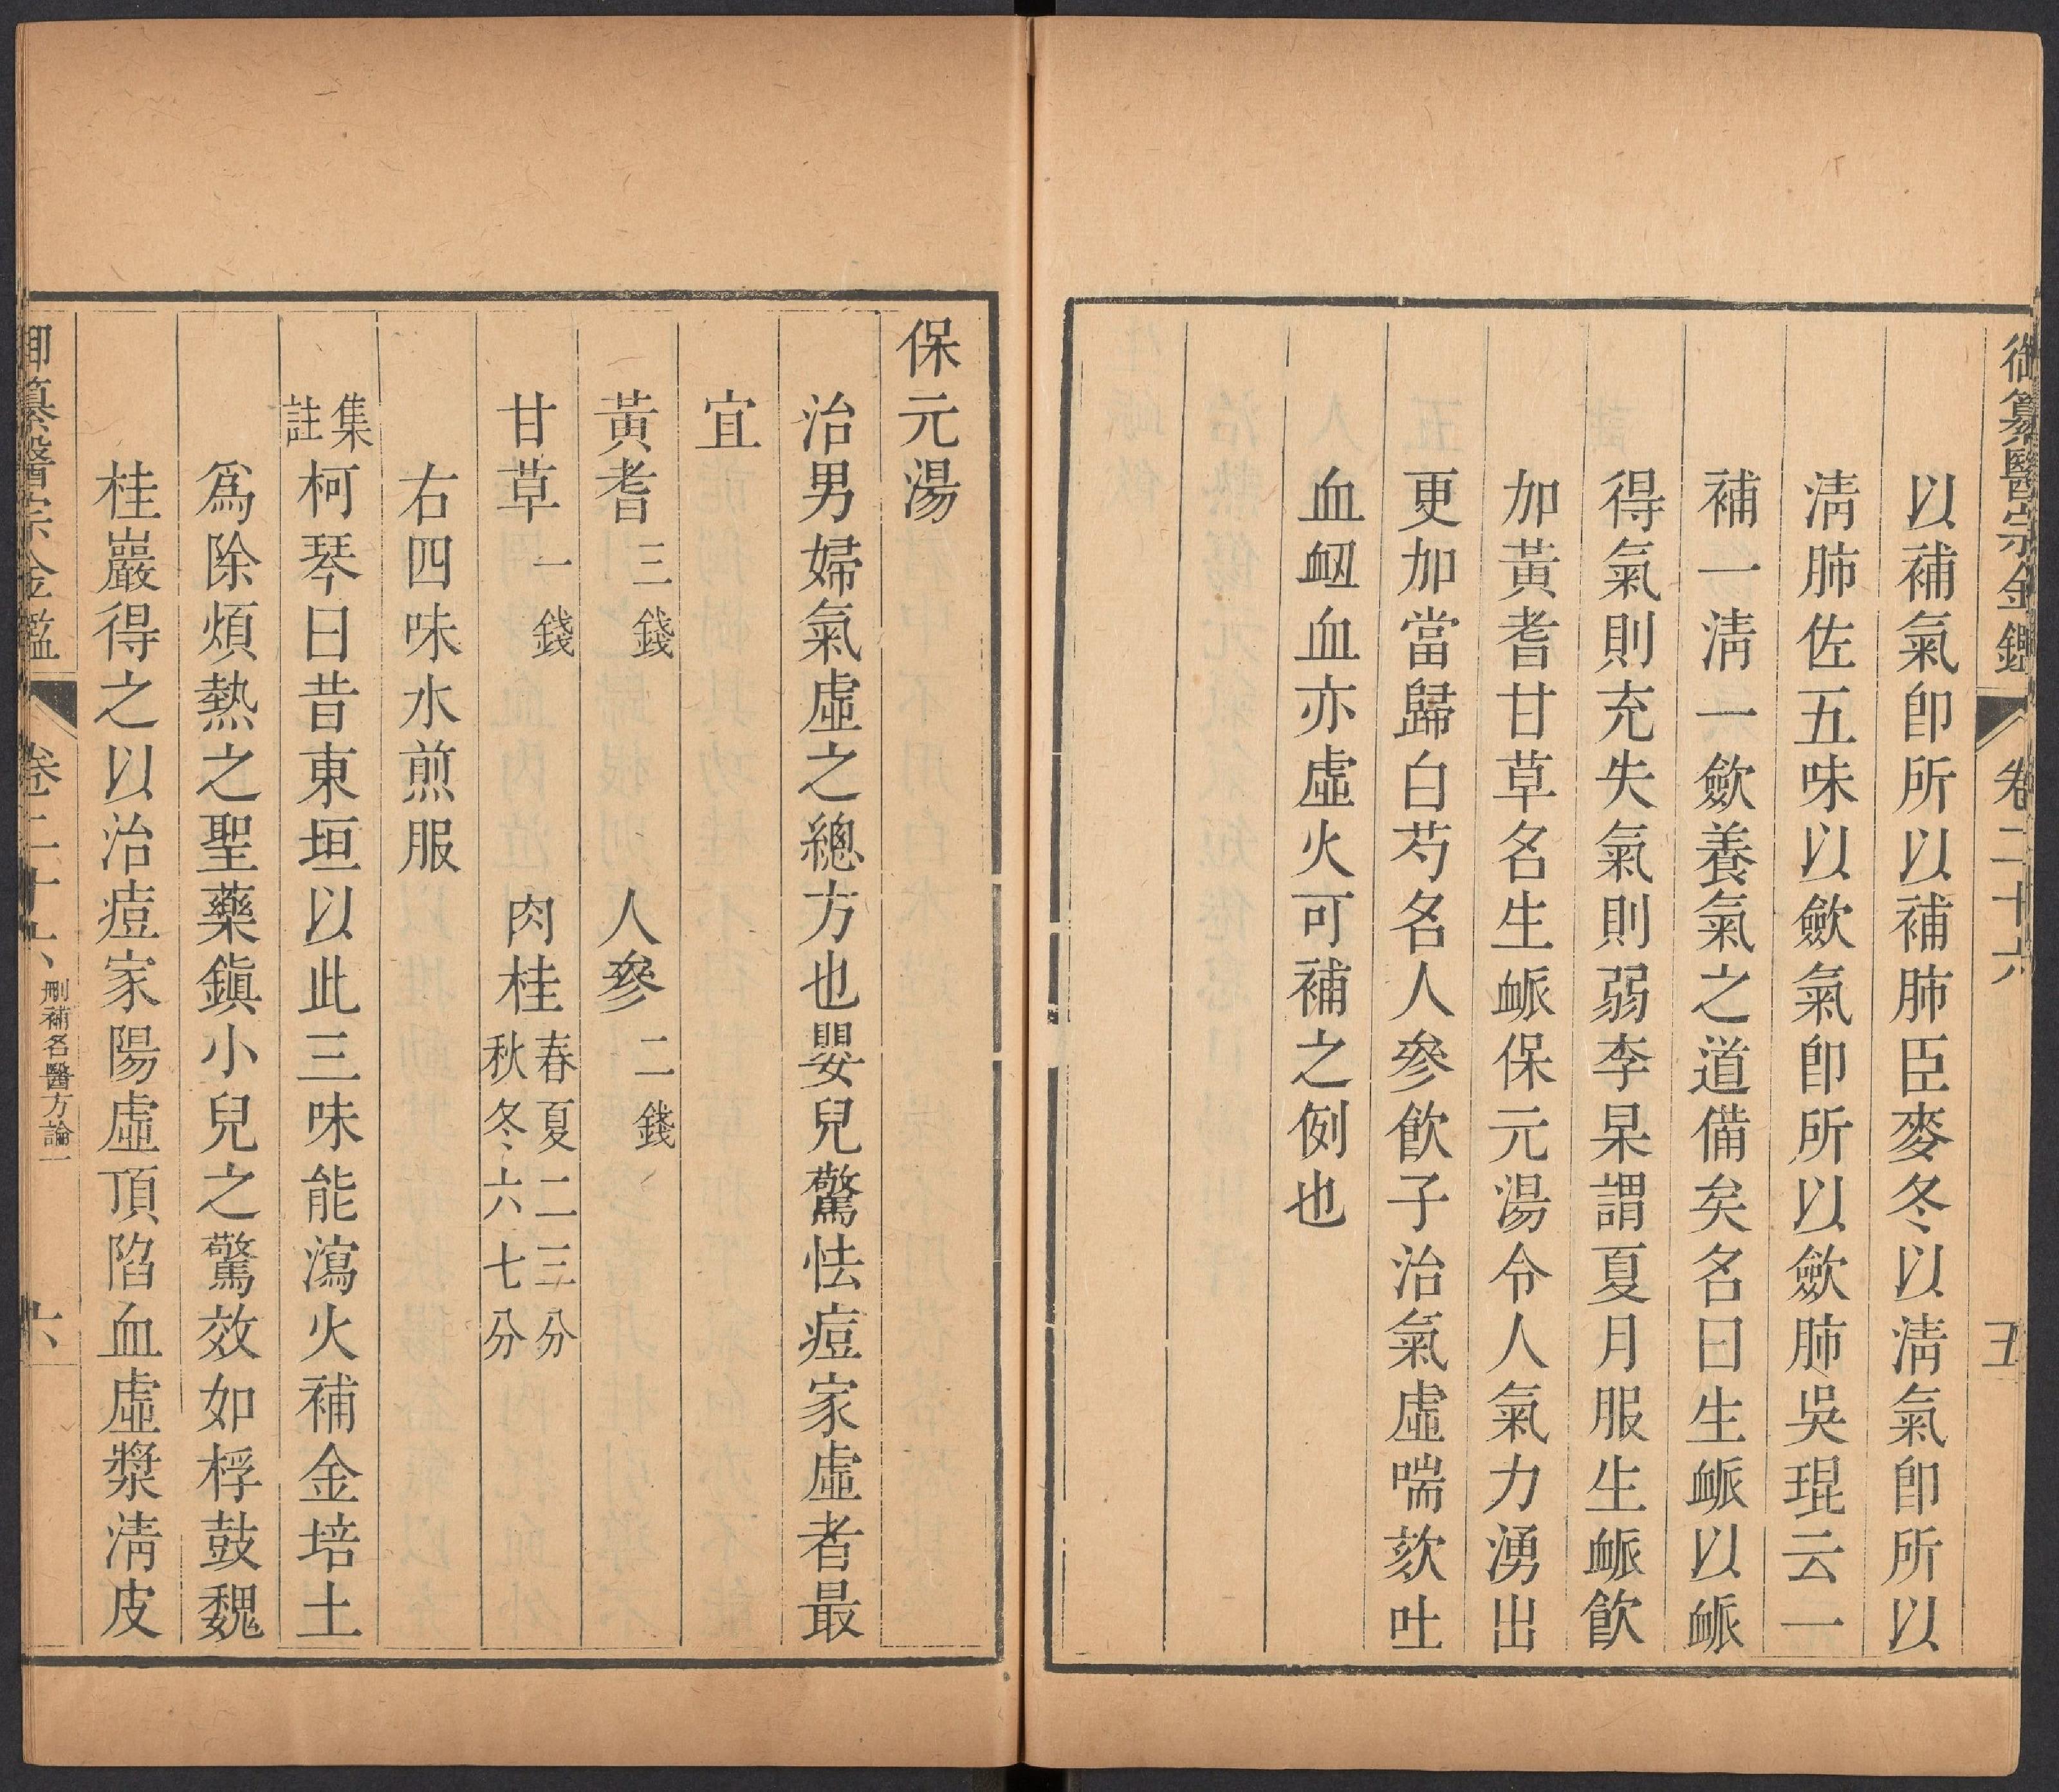 御纂醫宗金鑑 卷二十六 五
以補氣卽所以補肺臣麥冬以淸氣卽所以
淸肺佐五味以歛氣卽所以歛肺吳琨云一
補一淸一歛養氣之道備矣名曰生䘑以䘑
得氣則充失氣則弱李杲謂夏月服生䘑飮
加黃耆甘草名生䘑保元湯令人氣力湧出
更加當歸白芍名人參飮子治氣虛喘欬吐
血衂血亦虛火可補之例也
保元湯
治男婦氣虛之總方也嬰兒驚怯痘家虛者最
宜
黃耆三錢 人參二錢
甘草一錢 肉桂春夏二三分秋冬六七分
右四味水煎服
集註柯琴曰昔東垣以此三味能瀉火補金培土
爲除煩熱之聖藥鎭小兒之驚效如桴鼓魏
桂巖得之以治痘家陽虛頂陷血虛漿淸皮
御纂醫宗金鑑 卷二十六 刪補名醫方論一 六